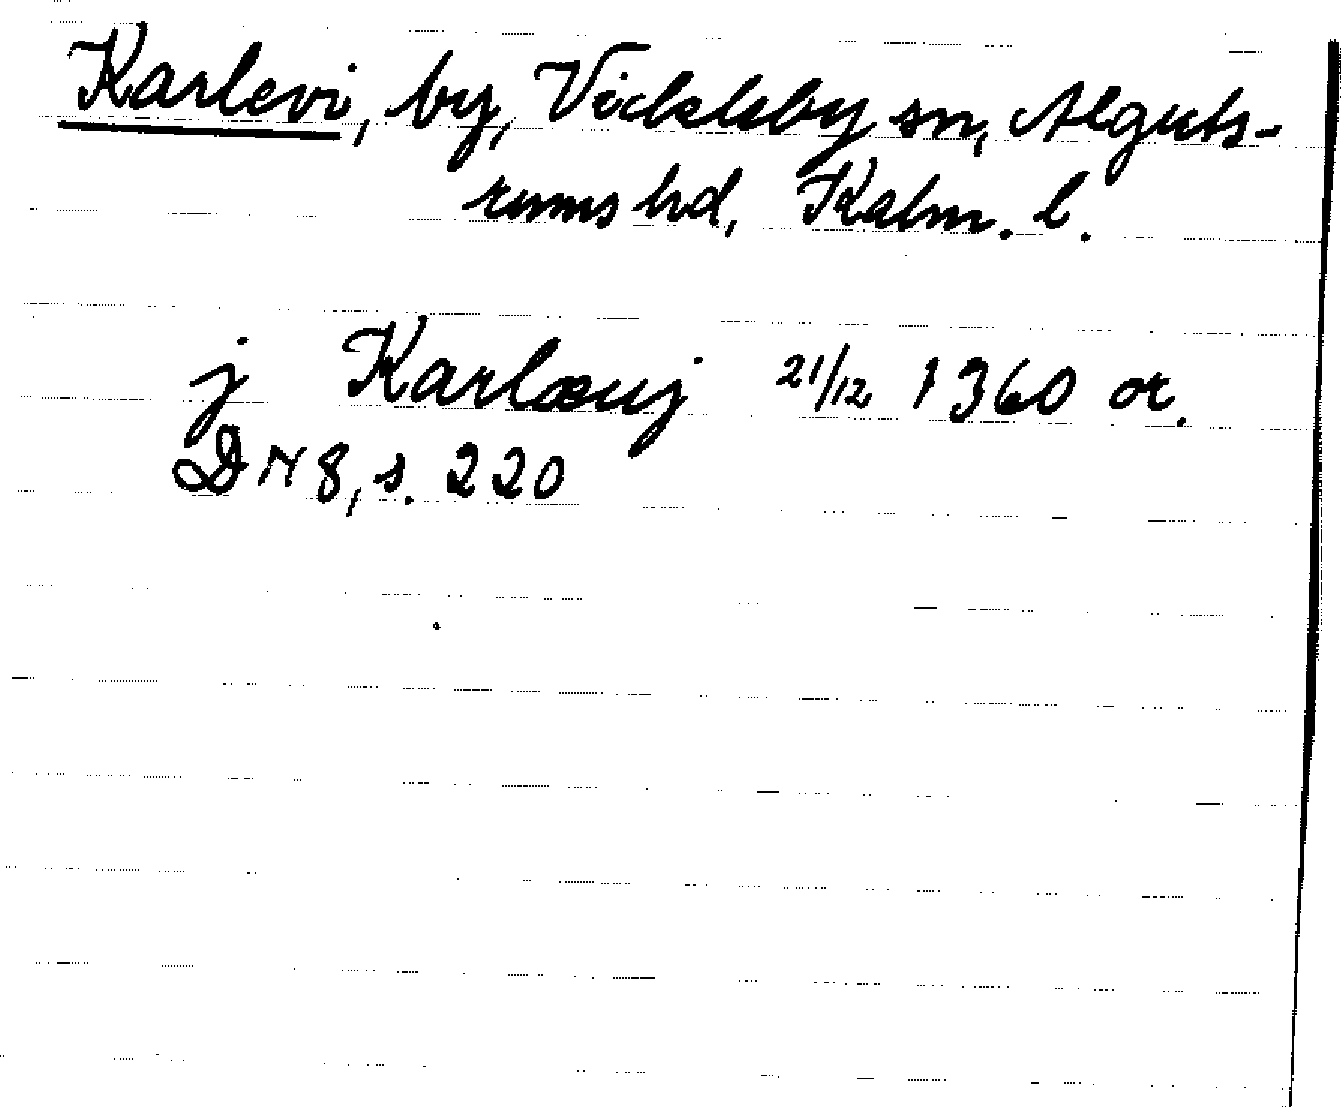 Karlevi, by, Vickleby sn, Alguts-
rums hd, Kalm. l.
j Karlæuj 21/12 1360 or.
DN 8, s. 220